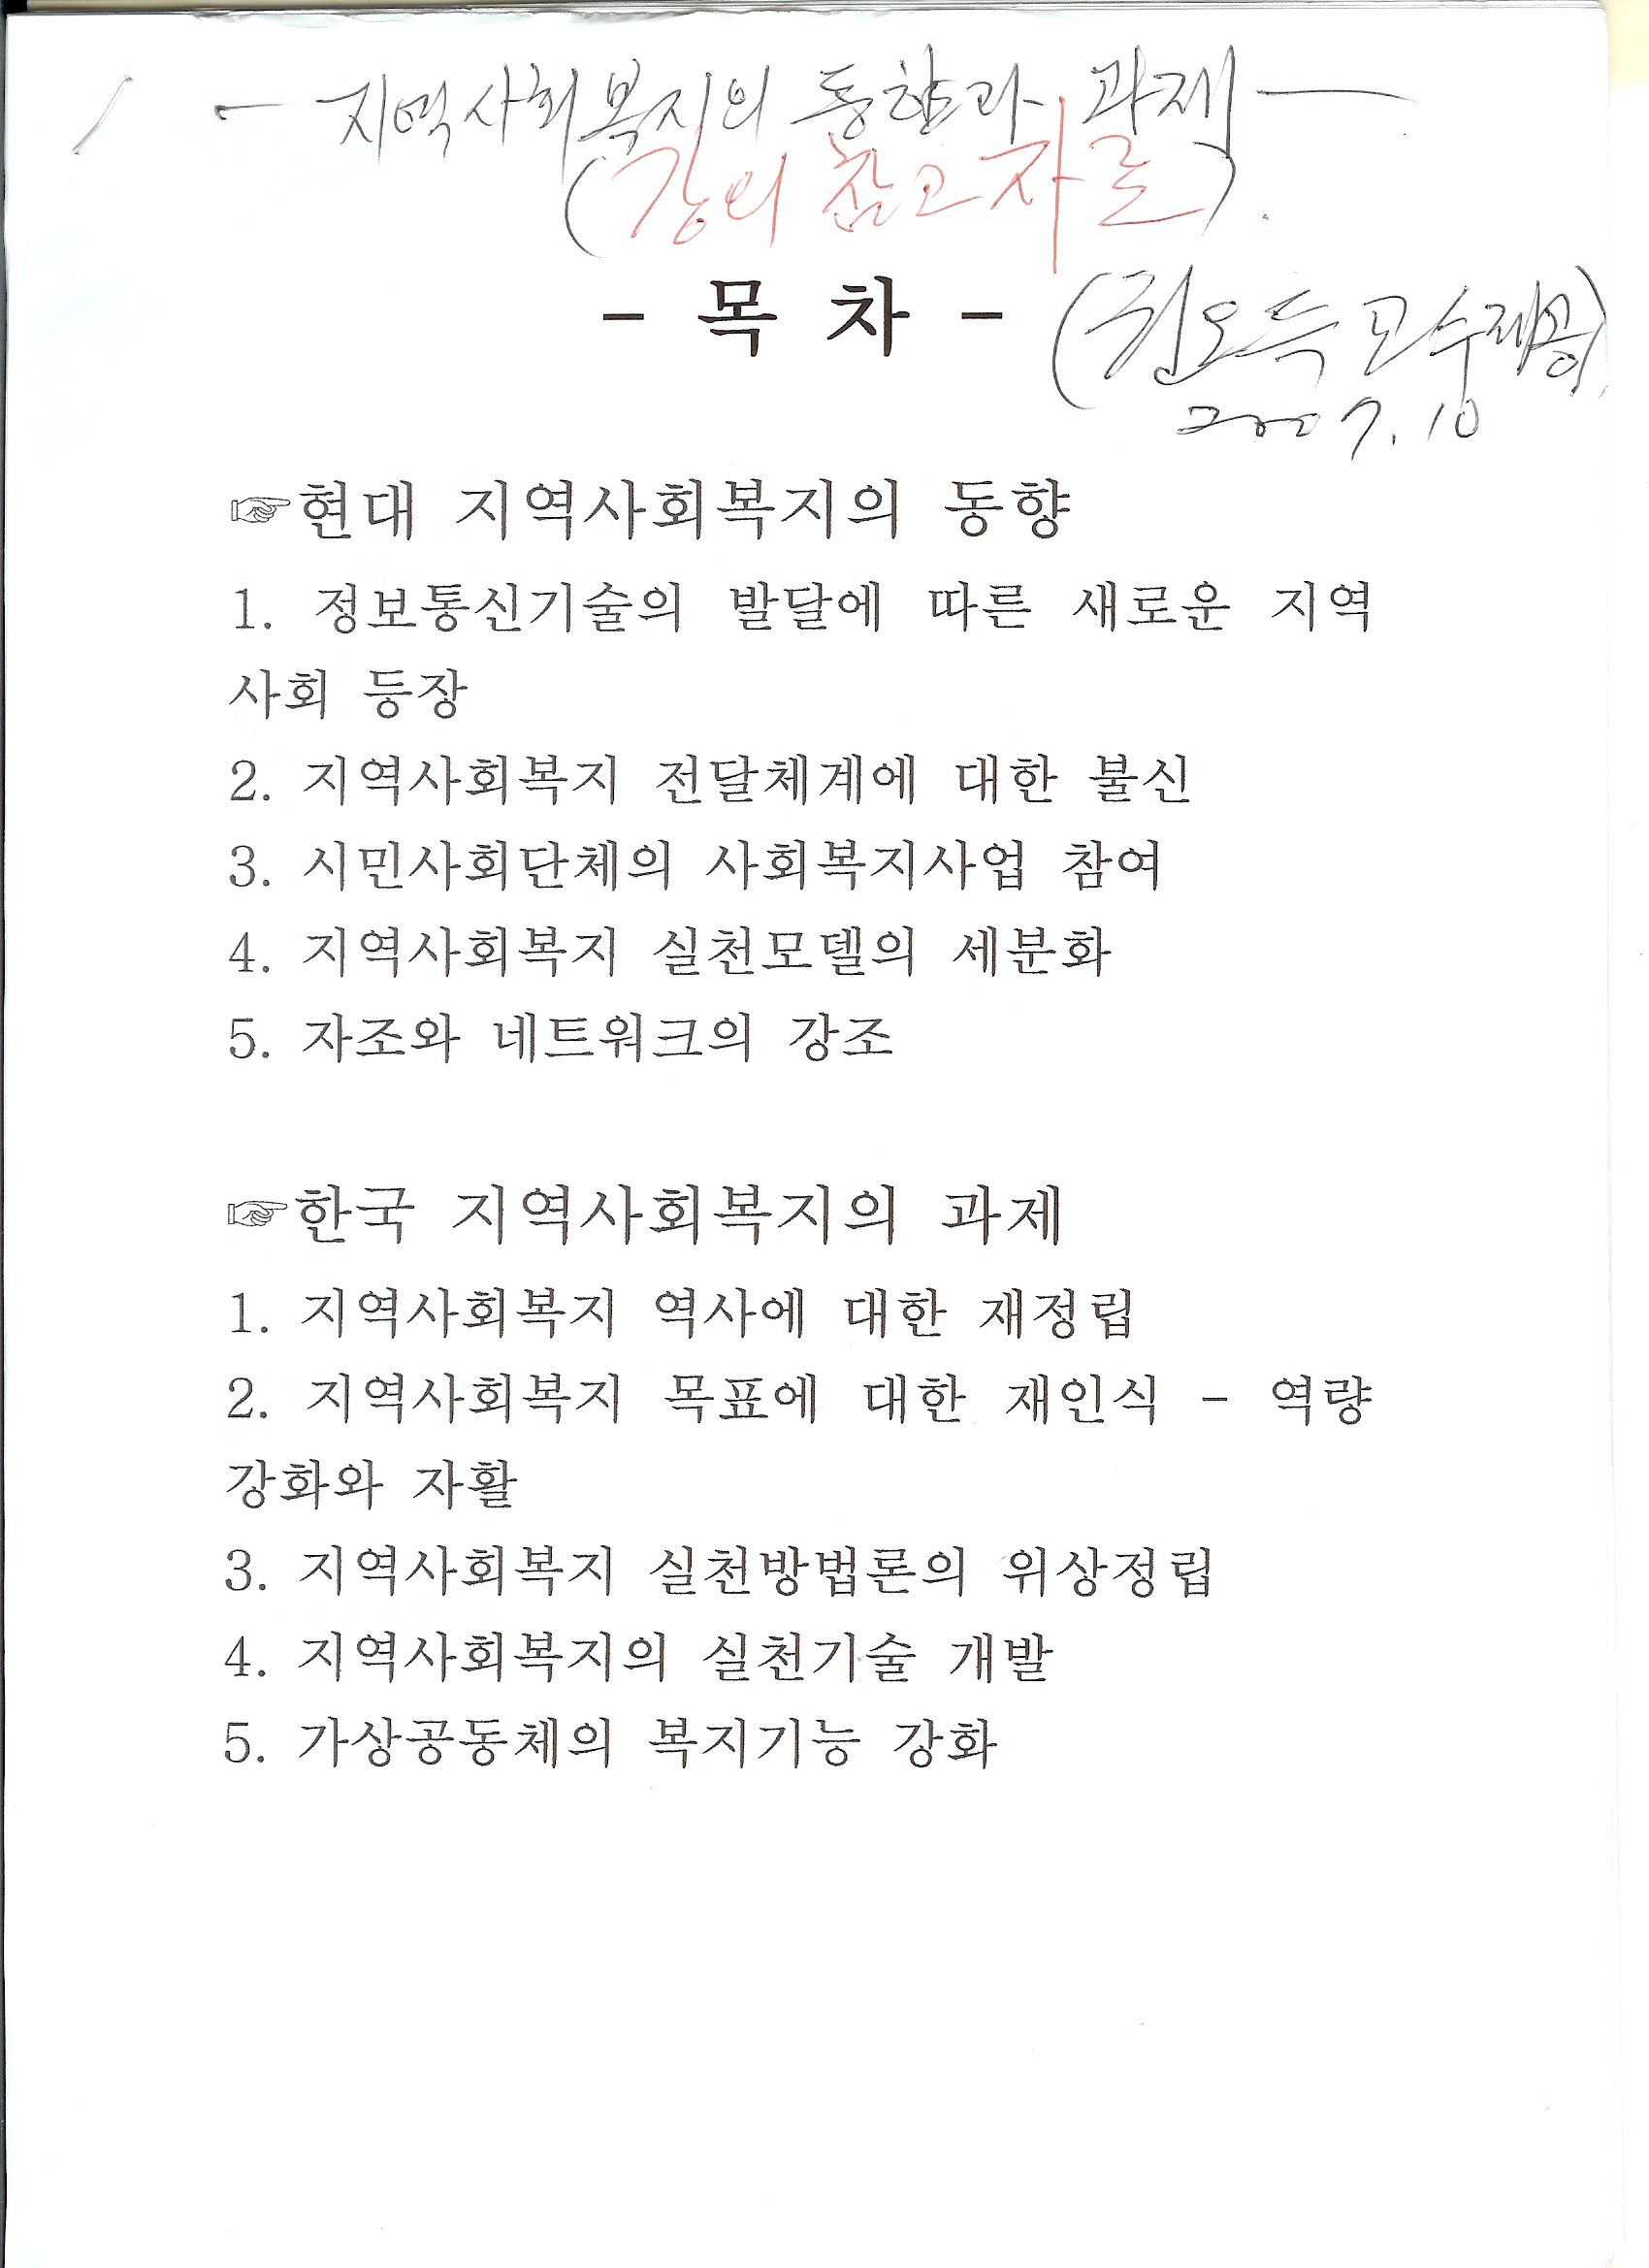 - 지역사회복지의 동향과 과제 -
(강의 참고자료).
- 목 차 -
(권오득 교수제공)
2007. 10
☞현대 지역사회복지의 동향
1. 정보통신기술의 발달에 따른 새로운 지역
사회 등장
2. 지역사회복지 전달체계에 대한 불신
3. 시민사회단체의 사회복지사업 참여
4. 지역사회복지 실천모델의 세분화
5. 자조와 네트워크의 강조
☞한국 지역사회복지의 과제
1. 지역사회복지 역사에 대한 재정립
2. 지역사회복지 목표에 대한 재인식 - 역량
강화와 자활
3. 지역사회복지 실천방법론의 위상정립
4. 지역사회복지의 실천기술 개발
5. 가상공동체의 복지기능 강화